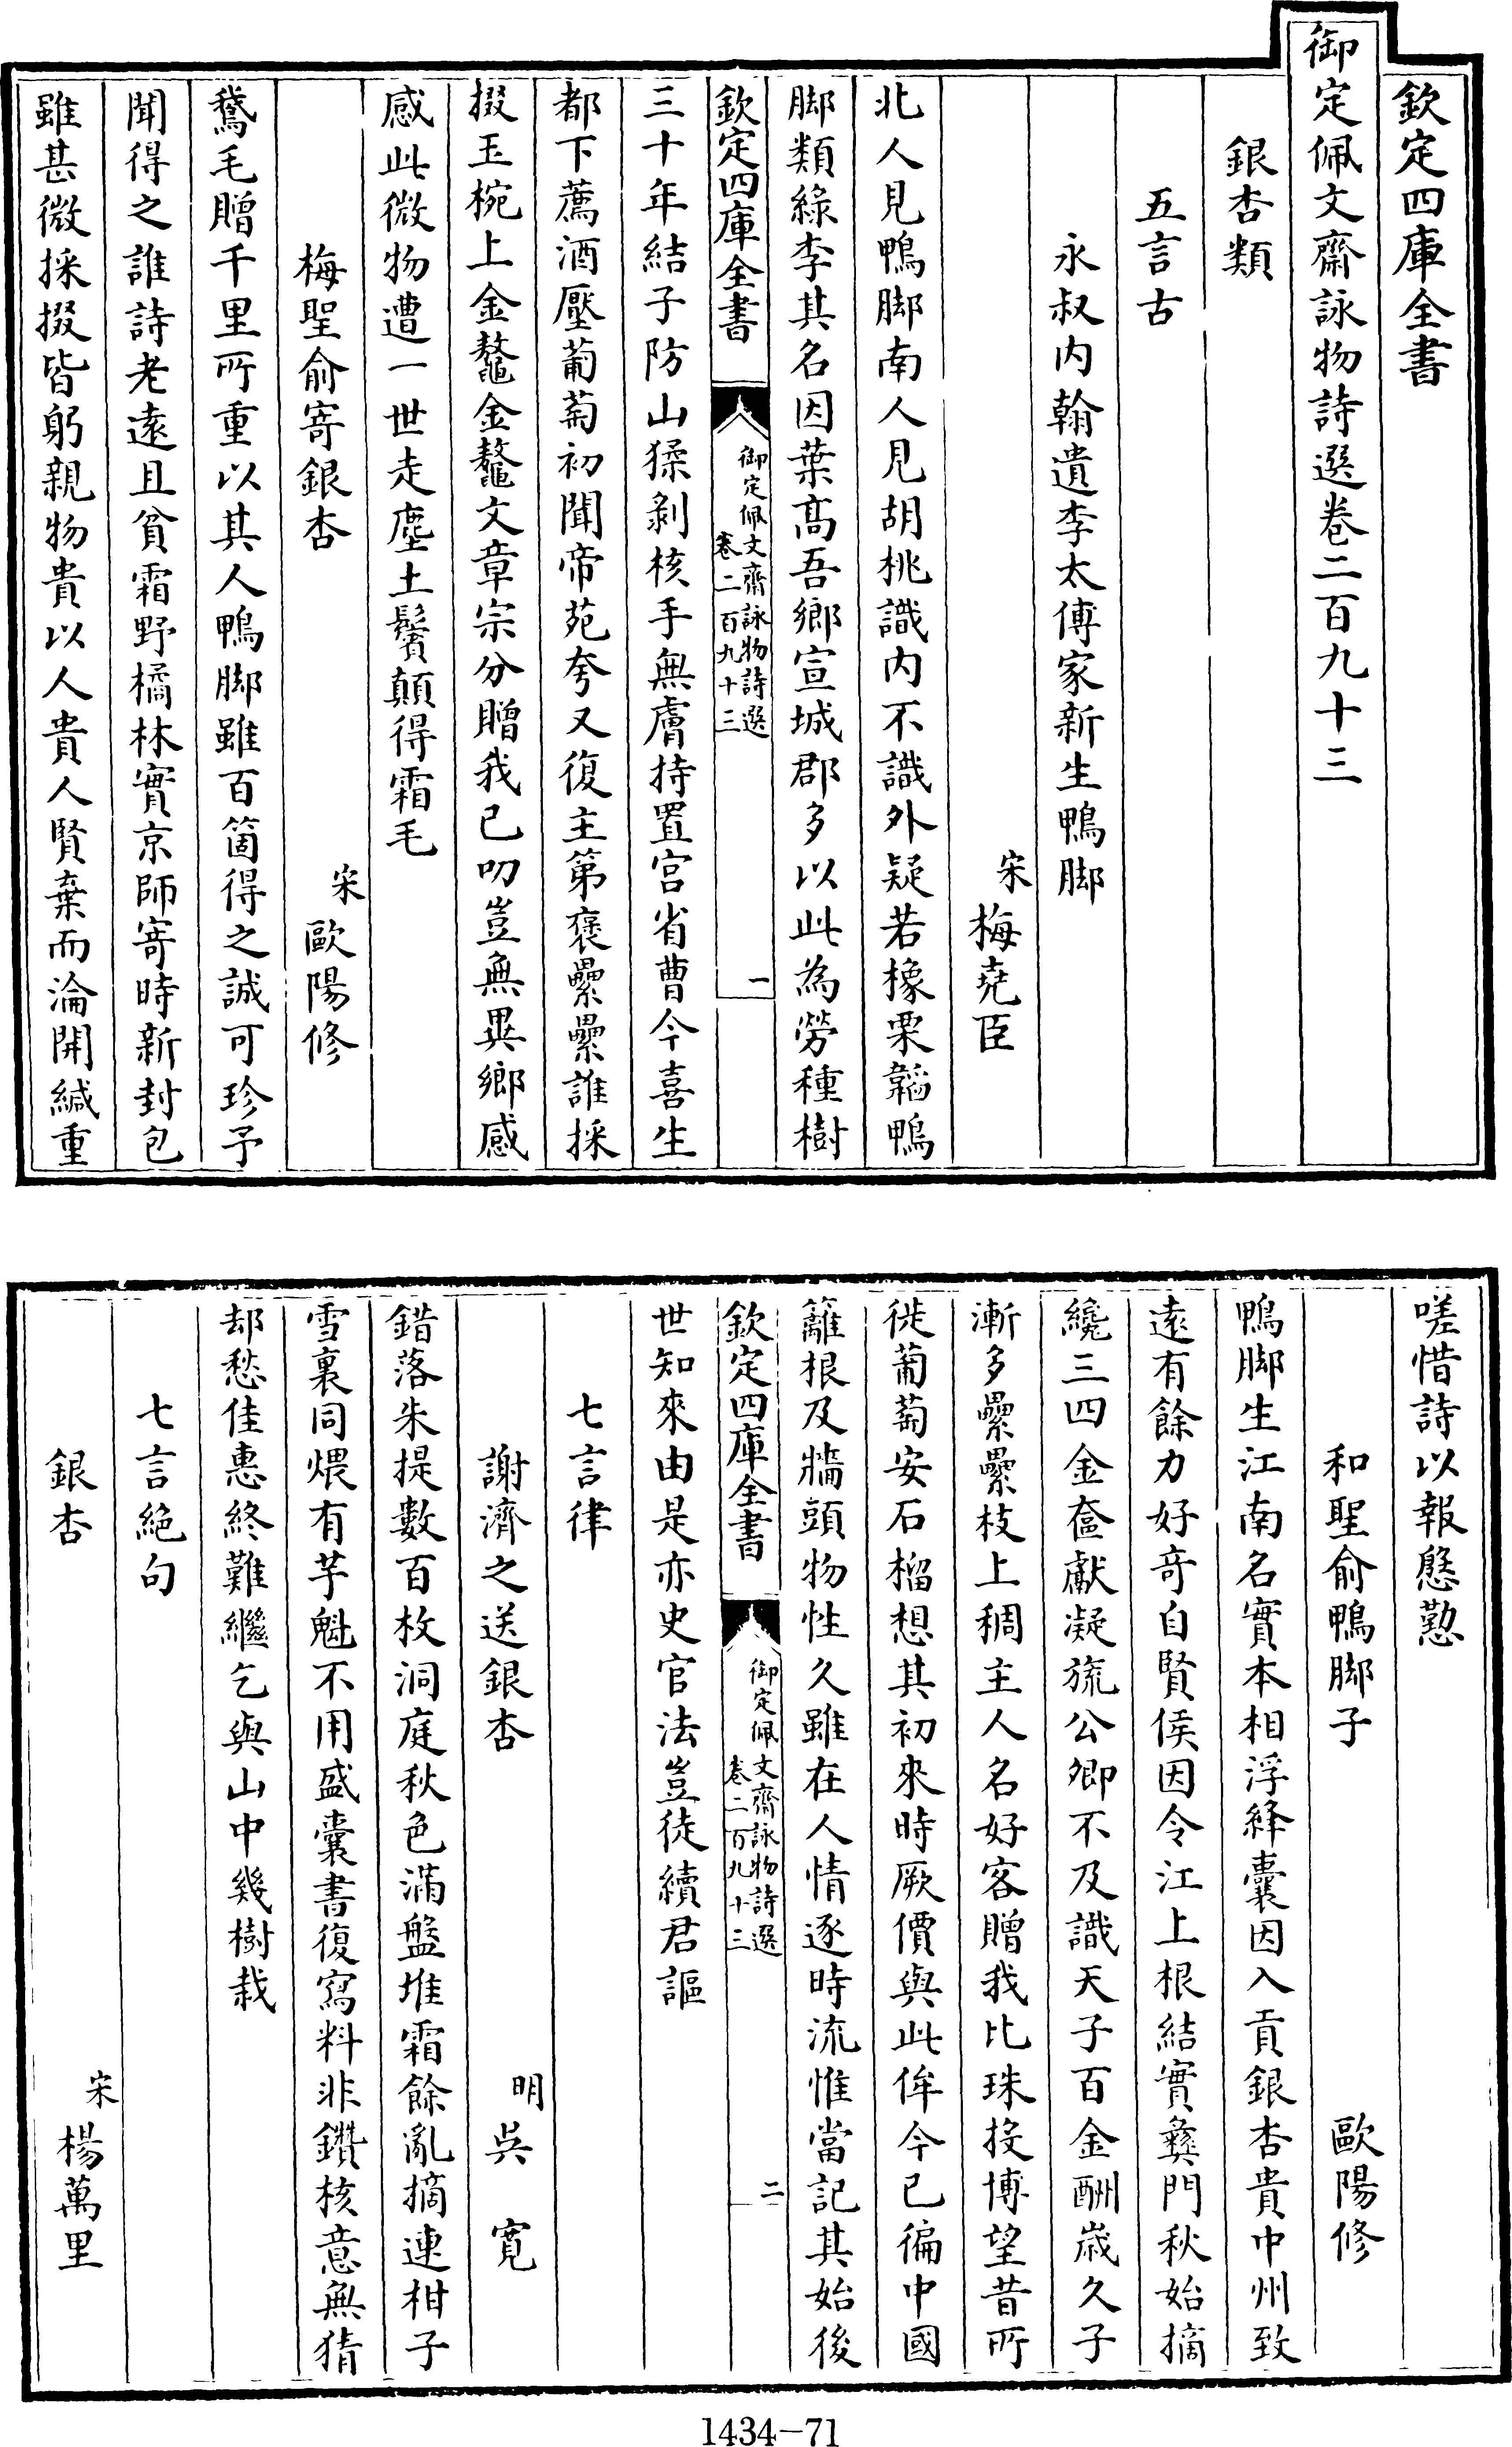 欽定四庫全書
御定佩文齋詠物詩選卷二百九十三
銀杏類
五言古
永叔内翰遺李太傅家新生鴨脚
宋梅堯臣
北人見鴨脚南人見胡桃識内不識外疑若橡栗韜鴨
脚類綠李其名因葉髙吾鄉宣城郡多以此為勞種樹
欽定四庫全書
御定佩文齋詠物詩選
卷二百九十三
一
三十年結子防山猱剥核手無膚持置宫省曹今喜生
都下薦酒壓葡萄初聞帝苑夸又復主第褒纍纍誰採
掇玉椀上金鼇金鼇文章宗分贈我已叨豈無異鄉感
感此微物遭一世走塵土鬢顛得霜毛
梅聖俞寄銀杏
宋歐陽修
鵞毛贈千里所重以其人鴨脚雖百箇得之誠可珍予
聞得之誰詩老逺且貧霜野橘林實京師寄時新封包
雖甚微採掇皆躬親物貴以人貴人賢棄而淪開緘重
嗟惜詩以報慇懃
和聖俞鴨脚子
歐陽修
鴨脚生江南名實本相浮絳囊因入貢銀杏貴中州致
逺有餘力好奇自賢侯因令江上根結實彝門秋始摘
纔三四金奩獻凝旒公卿不及識天子百金酬嵗久子
漸多纍纍枝上稠主人名好客贈我比珠投博望昔所
徙葡萄安石榴想其初來時厥價與此侔今已徧中國
籬根及牆頭物性久雖在人情逐時流惟當記其始後
欽定四庫全書
御定佩文齋詠物詩選
卷二百九十三
二
世知來由是亦史官法豈徒續君謳
七言律
謝濟之送銀杏
明吳寛
錯落朱提數百枚洞庭秋色滿盤堆霜餘亂摘連柑子
雪裏同煨有芋魁不用盛囊書復寫料非鑽核意無猜
却愁佳惠終難繼乞與山中幾樹栽
七言絶句
銀杏
宋楊萬里
1434-71